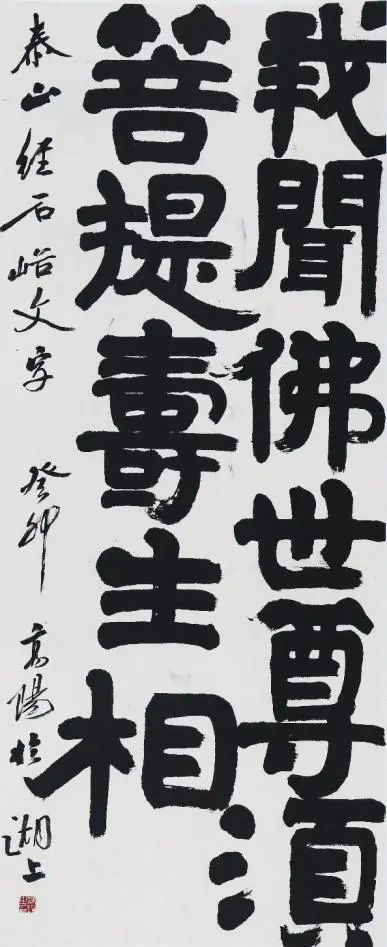 我聞佛世尊須
菩提壽主相
泰山經石峪文字 癸卯 高陽於湖上